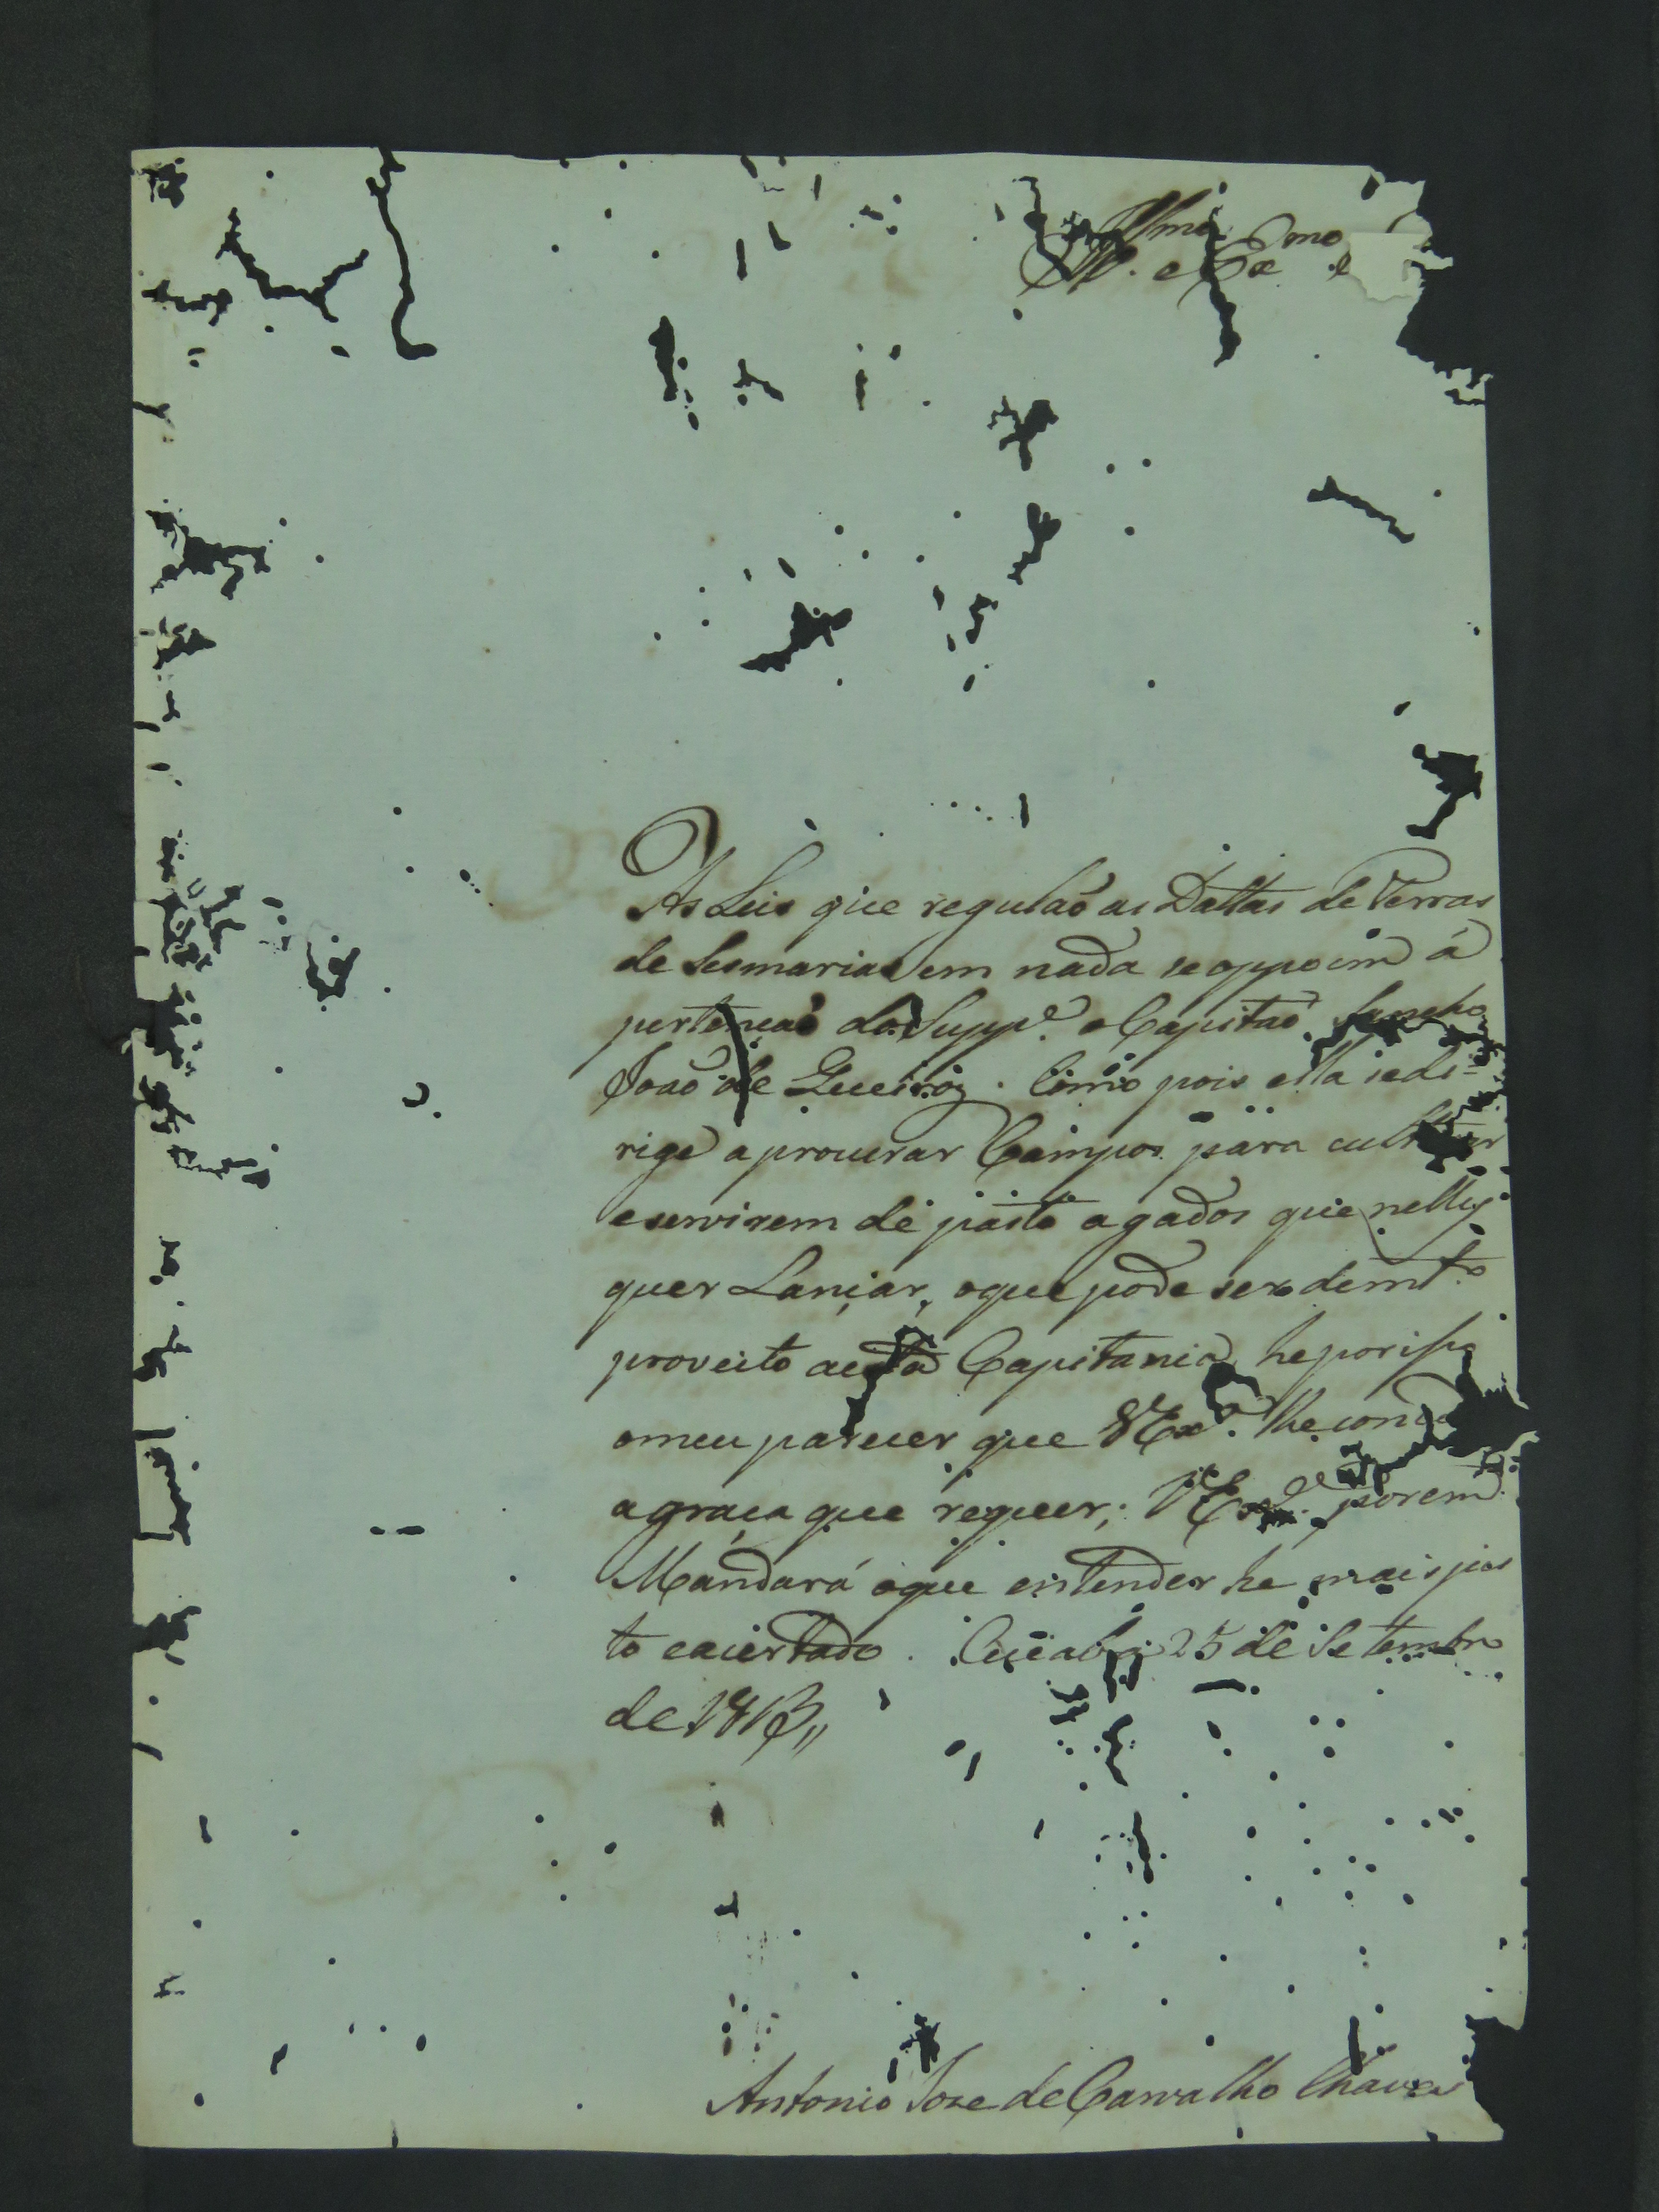 Illmo. Exmo
As Leis que regulaõ as Dattas de Terras
de Sesmarias em nada se oppoem á
pertençaõ do Suppe. o Capitaõ Sancho
Joaõ de Queiroz. Como pois ella se di=
rige a procurar Campos para cultivar
e servirem de pasto a gados que nelles
quer Lançar, o que pode ser de mto
proveito a esta Capitania, he por isso
o meu parecer que VExa. lhe conceda
a graça que requer; VExa. porem
Mandará o que entender he mais jus
to e acertado. Cuiabá 25 de Setembro
de 1813,,
Antonio Joze de Carvalho Chaves